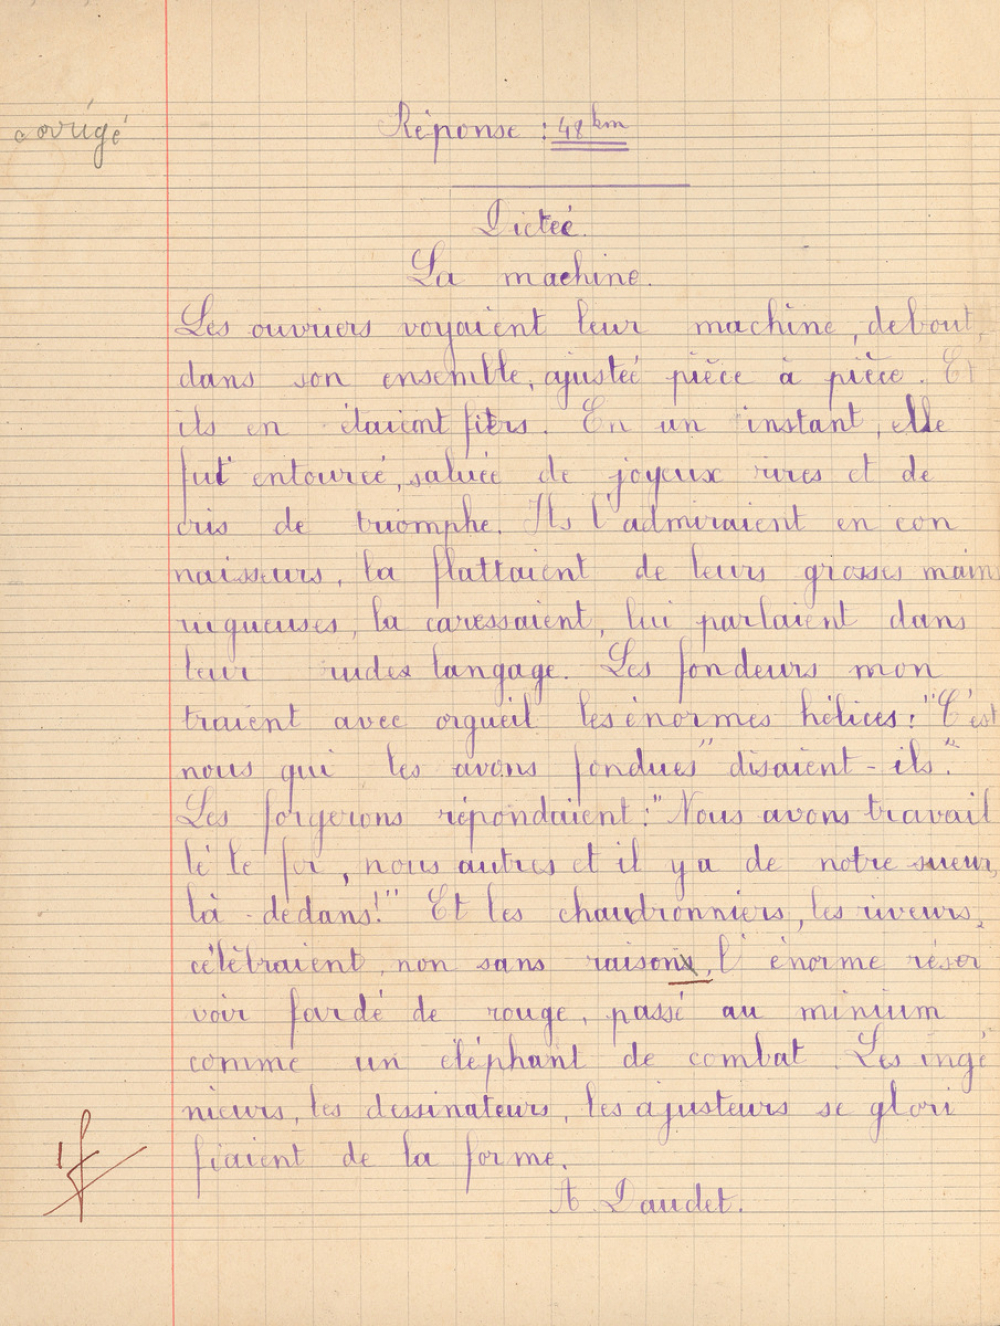 corrigé
Réponse : 48 km
Dictée.
La machine.
Les ouvriers voyaient leur machine, debout,
dans son ensemble, ajustée pièce à pièce. Et
ils en étaient fiers. En un instant, elle
fut entourée, saluée de joyeux rires et de
cris de triomphe. Ils l'admiraient en con
naisseurs, la flattaient de leurs grosses mains
rugueuses, la caressaient, lui parlaient dans
leur rudes langage. Les fondeurs mon
traient avec orgueil les énormes hélices : "C'est
nous qui les avons fondues" disaient-ils."
Les forgerons répondaient : "Nous avons travail
lé le fer, nous autres et il y a de notre sueur,
là-dedans !" Et les chaudronniers, les riveurs,
célébraient, non sans raisons, l'énorme réser
voir fardé de rouge, passé au minium
comme un éléphant de combat. Les ingé
nieurs, les dessinateurs, les ajusteurs se glori
fiaient de la forme.
A. Daudet.
1 f